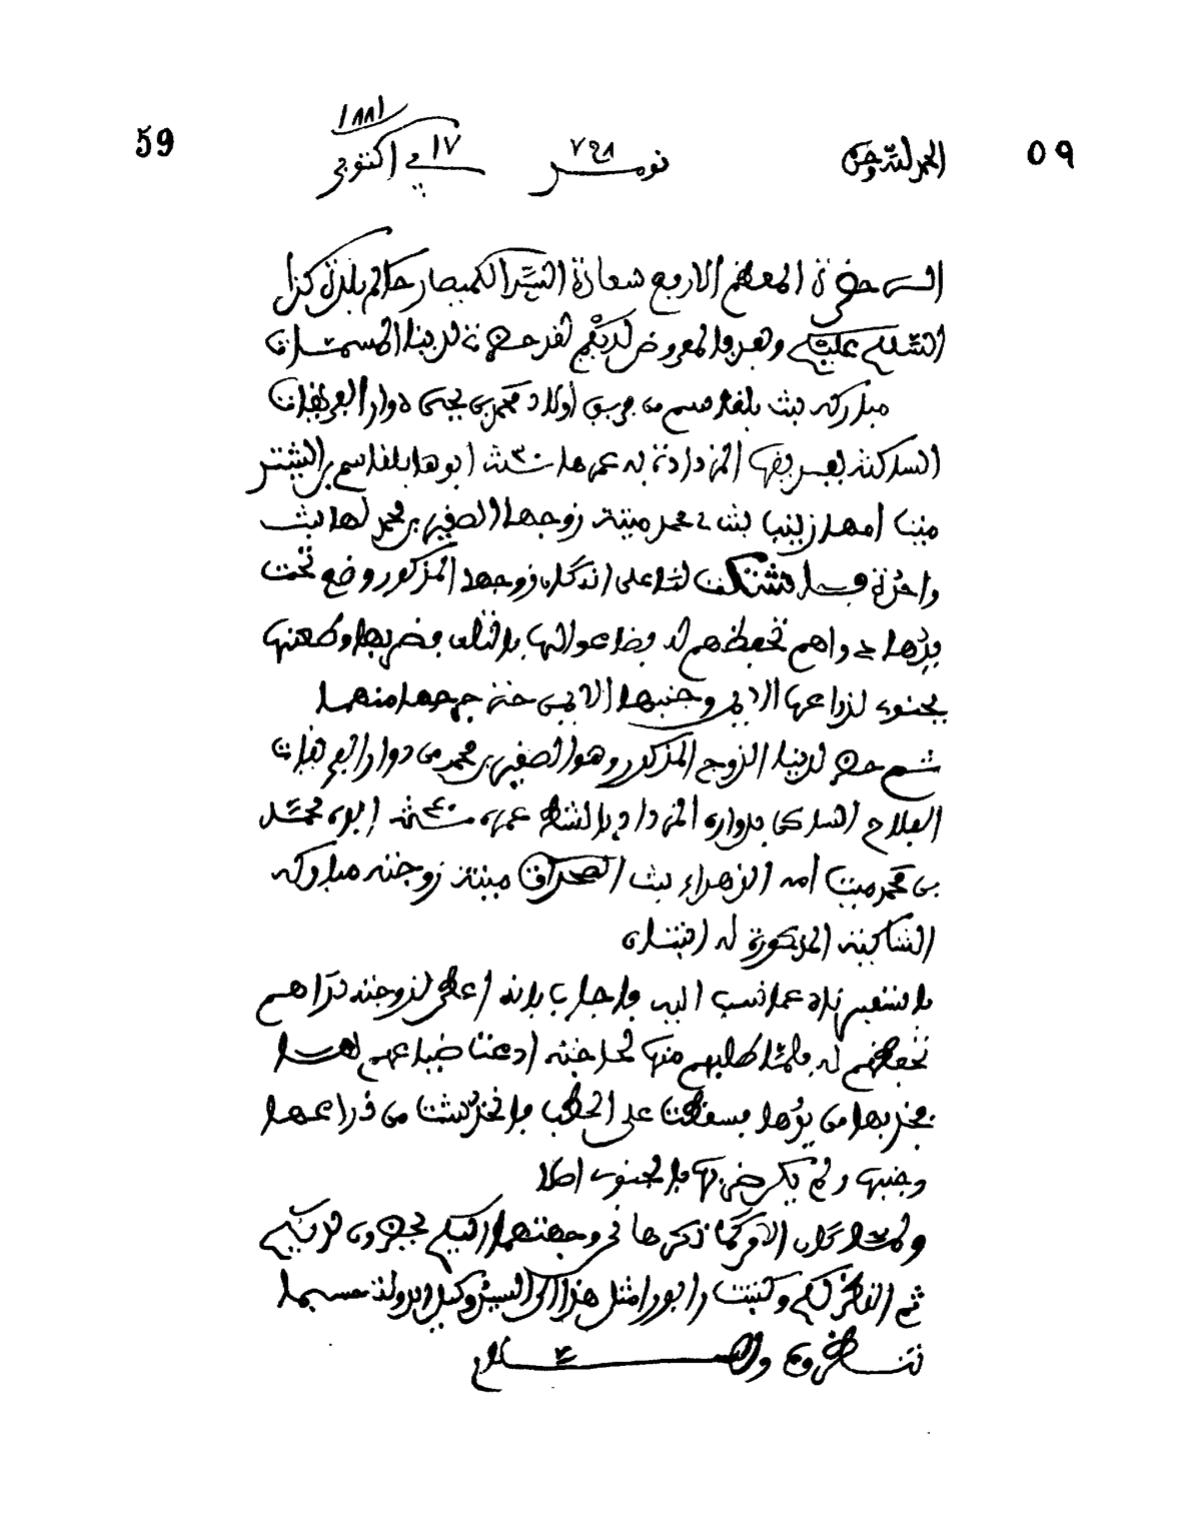 59
٥٩
الحمد لله وحده
نومر ٧٩٨
في ١٧ اكتوبر ١٨٨١
الى حضرة المعظم الارفع سعادة السيد الكميصار حاكم بلدة كذا
السلام عليكم وبعد فالمعروض لديكم لقد حضرت لدينا المسمات
مباركه بنت بلقاسم من فريق اولاد محمد بن يحيى دوار
الساكنة بفريقها المزدادة به عمرها ٣٠ سنة ابوها بلقاسم بن البشير
ميتا امها زينب بنت محمد ميتة زوجها الصغير بن محمد لها بنت
واحدة فقط تشتكت لنا على ان زوجها المذكور وضع تحت
يدها دراهم تحفظهم له فضاعوا لها بالتلف فضربها وطعنها
بجنوي لذراعها الايمن وجنبها الايمن حتى جرحها منهما
ثم حضر لدينا الزوج المذكور وهو الصغير بن محمد من دوار
الفلاح الساكن بدواره المزداد بالشط عمره ٤٠ سنة ابوه محمد
بن محمد ميتا امه الزهراء بنت ميتة زوجته مباركه
الساكنة المذكورة له ابنتان
فاستفسرناه عما نسب اليه فاجاب بانه اعطى لزوجته دراهم
تحفظهم له فلما طلبهم منها لحاجته ادعت ضياعهم لها
فضربها من يدها فسقطت على الحطب فانخدشت من ذراعها
وجنبها ولم يكن ضربها بالجنوي اصلا
ولما كان الامر كما ذكرها في وجهتهما اليكم يحضرون لديكم
ثم النظر لكم وكتبت رابورا مثل هذا الى السيد وكيل الدولة حسبما
تنظرون والسلام